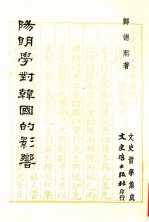 鄭德熙著
陽明學對韓國的影響
文史哲學集成
文史哲出版社印行